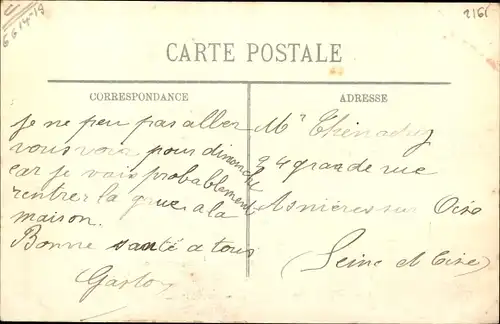 6614-19
2161
CARTE POSTALE
CORRESPONDANCE
ADRESSE
je ne peu pas aller
vous voir pour dimanche
car je vais probablement
rentrer la grue a la
maison.
Bonne santé a tous
Gaston
Mr
24 grande rue
Asnières sur Oise
(Seine et Oise)